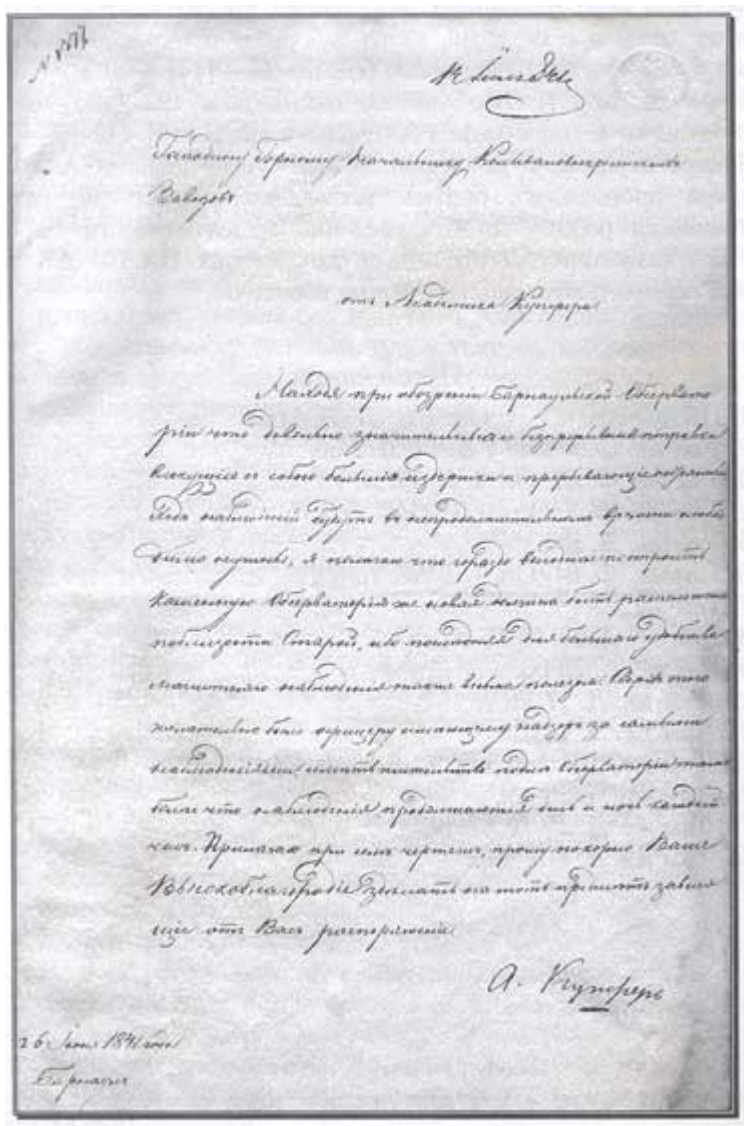 Господину Горному Начальнику Колывановоскресенскихъ
Заводовъ
отъ Академика Купфера
Находя при обозрении Барнаульской Обсервато
ріи что довольно значительныя и безпрерывныя поправки
влекущія съ собою большія издержки и прерывающіе
наблюденій будутъ въ непродолжительномъ времени
я полагаю что гораздо выгоднее построить
Обсерваторія же новая должна быть расположена
поблизости Старой, ибо последняя для большаго удобства
магнитнаго наблюденія также весьма полезна. Сверхъ того
желательно было офицеру имеющему надзоръ за самыми
наблюденіями иметь жительство подле Обсерваторіи
более что наблюденія продолжаются день и ночь каждый
часъ. Прилагая при семъ чертежъ, прошу покорно Ваше
Высокоблагородіе зделать на тотъ предметъ завися
щіе отъ Васъ распоряженіе.
А. Купферъ
26 1841 года
Барнаулъ